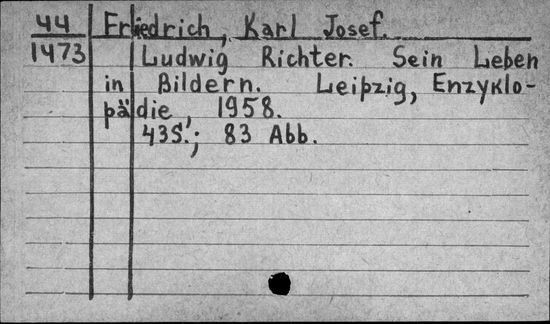 44 Friedrich, Karl Josef.
1473 Ludwig Richter. Sein Leben
in Bildern. Leipzig, Enzyklo-
pädie, 1958.
43S.; 83 Abb.